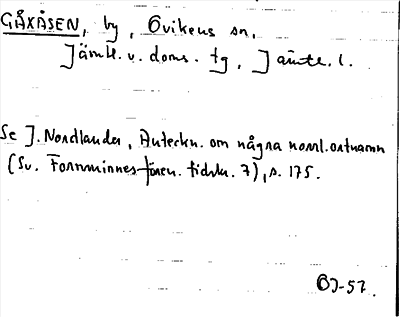 GÅXÅSEN, by, Ovikens sn,
Jämtl. v. doms. tg, Jämtl. l.
Se J. Nordlander, Anteckn. om några norrl. ortnamn
(Sv. Fornminnesfören. tidskr. 7), s. 175.
BJ-57.